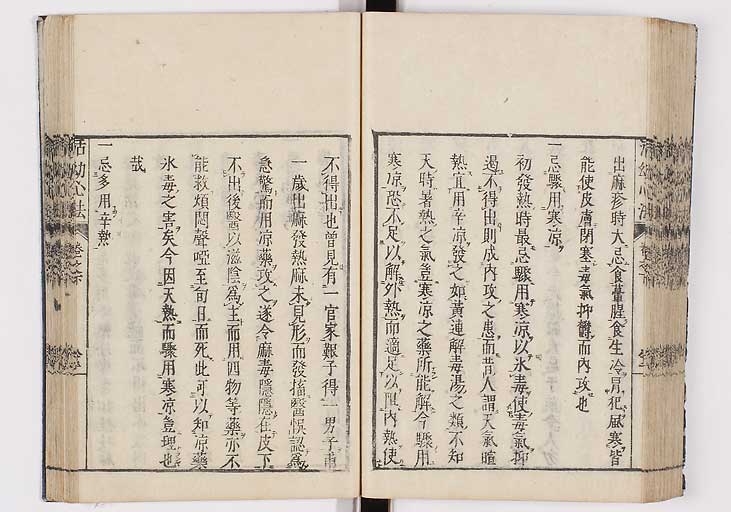 出麻疹時大忌食葷腥食生冷冒犯風寒皆
能使皮膚閉塞毒氣抑鬱而內攻也
一忌驟用寒凉
初發熱時最忌驟用寒凉以氷毒使毒氣抑
遏不得出則成內攻之患而昔人謂天氣暄
熱宜用辛凉發之如黃連解毒湯之類不知
天時暑熱之氣豈寒凉之藥所能解今驟用
寒凉恐不足以解外熱而適足以阻內熱使
不得出也曾見有一官家艱子得一男子
一歲出麻發熱麻未見形而發搐醫悞認爲
急驚而用凉藥攻之遂令麻毒隱隱在皮下
不出後醫以滋陰爲主而用四物等藥亦不
能救煩悶聲啞至旬日而死此可以知凉藥
氷毒之害矣今因天熱而驟用寒凉豈理也
哉
一忌多用辛熱
活幼心法